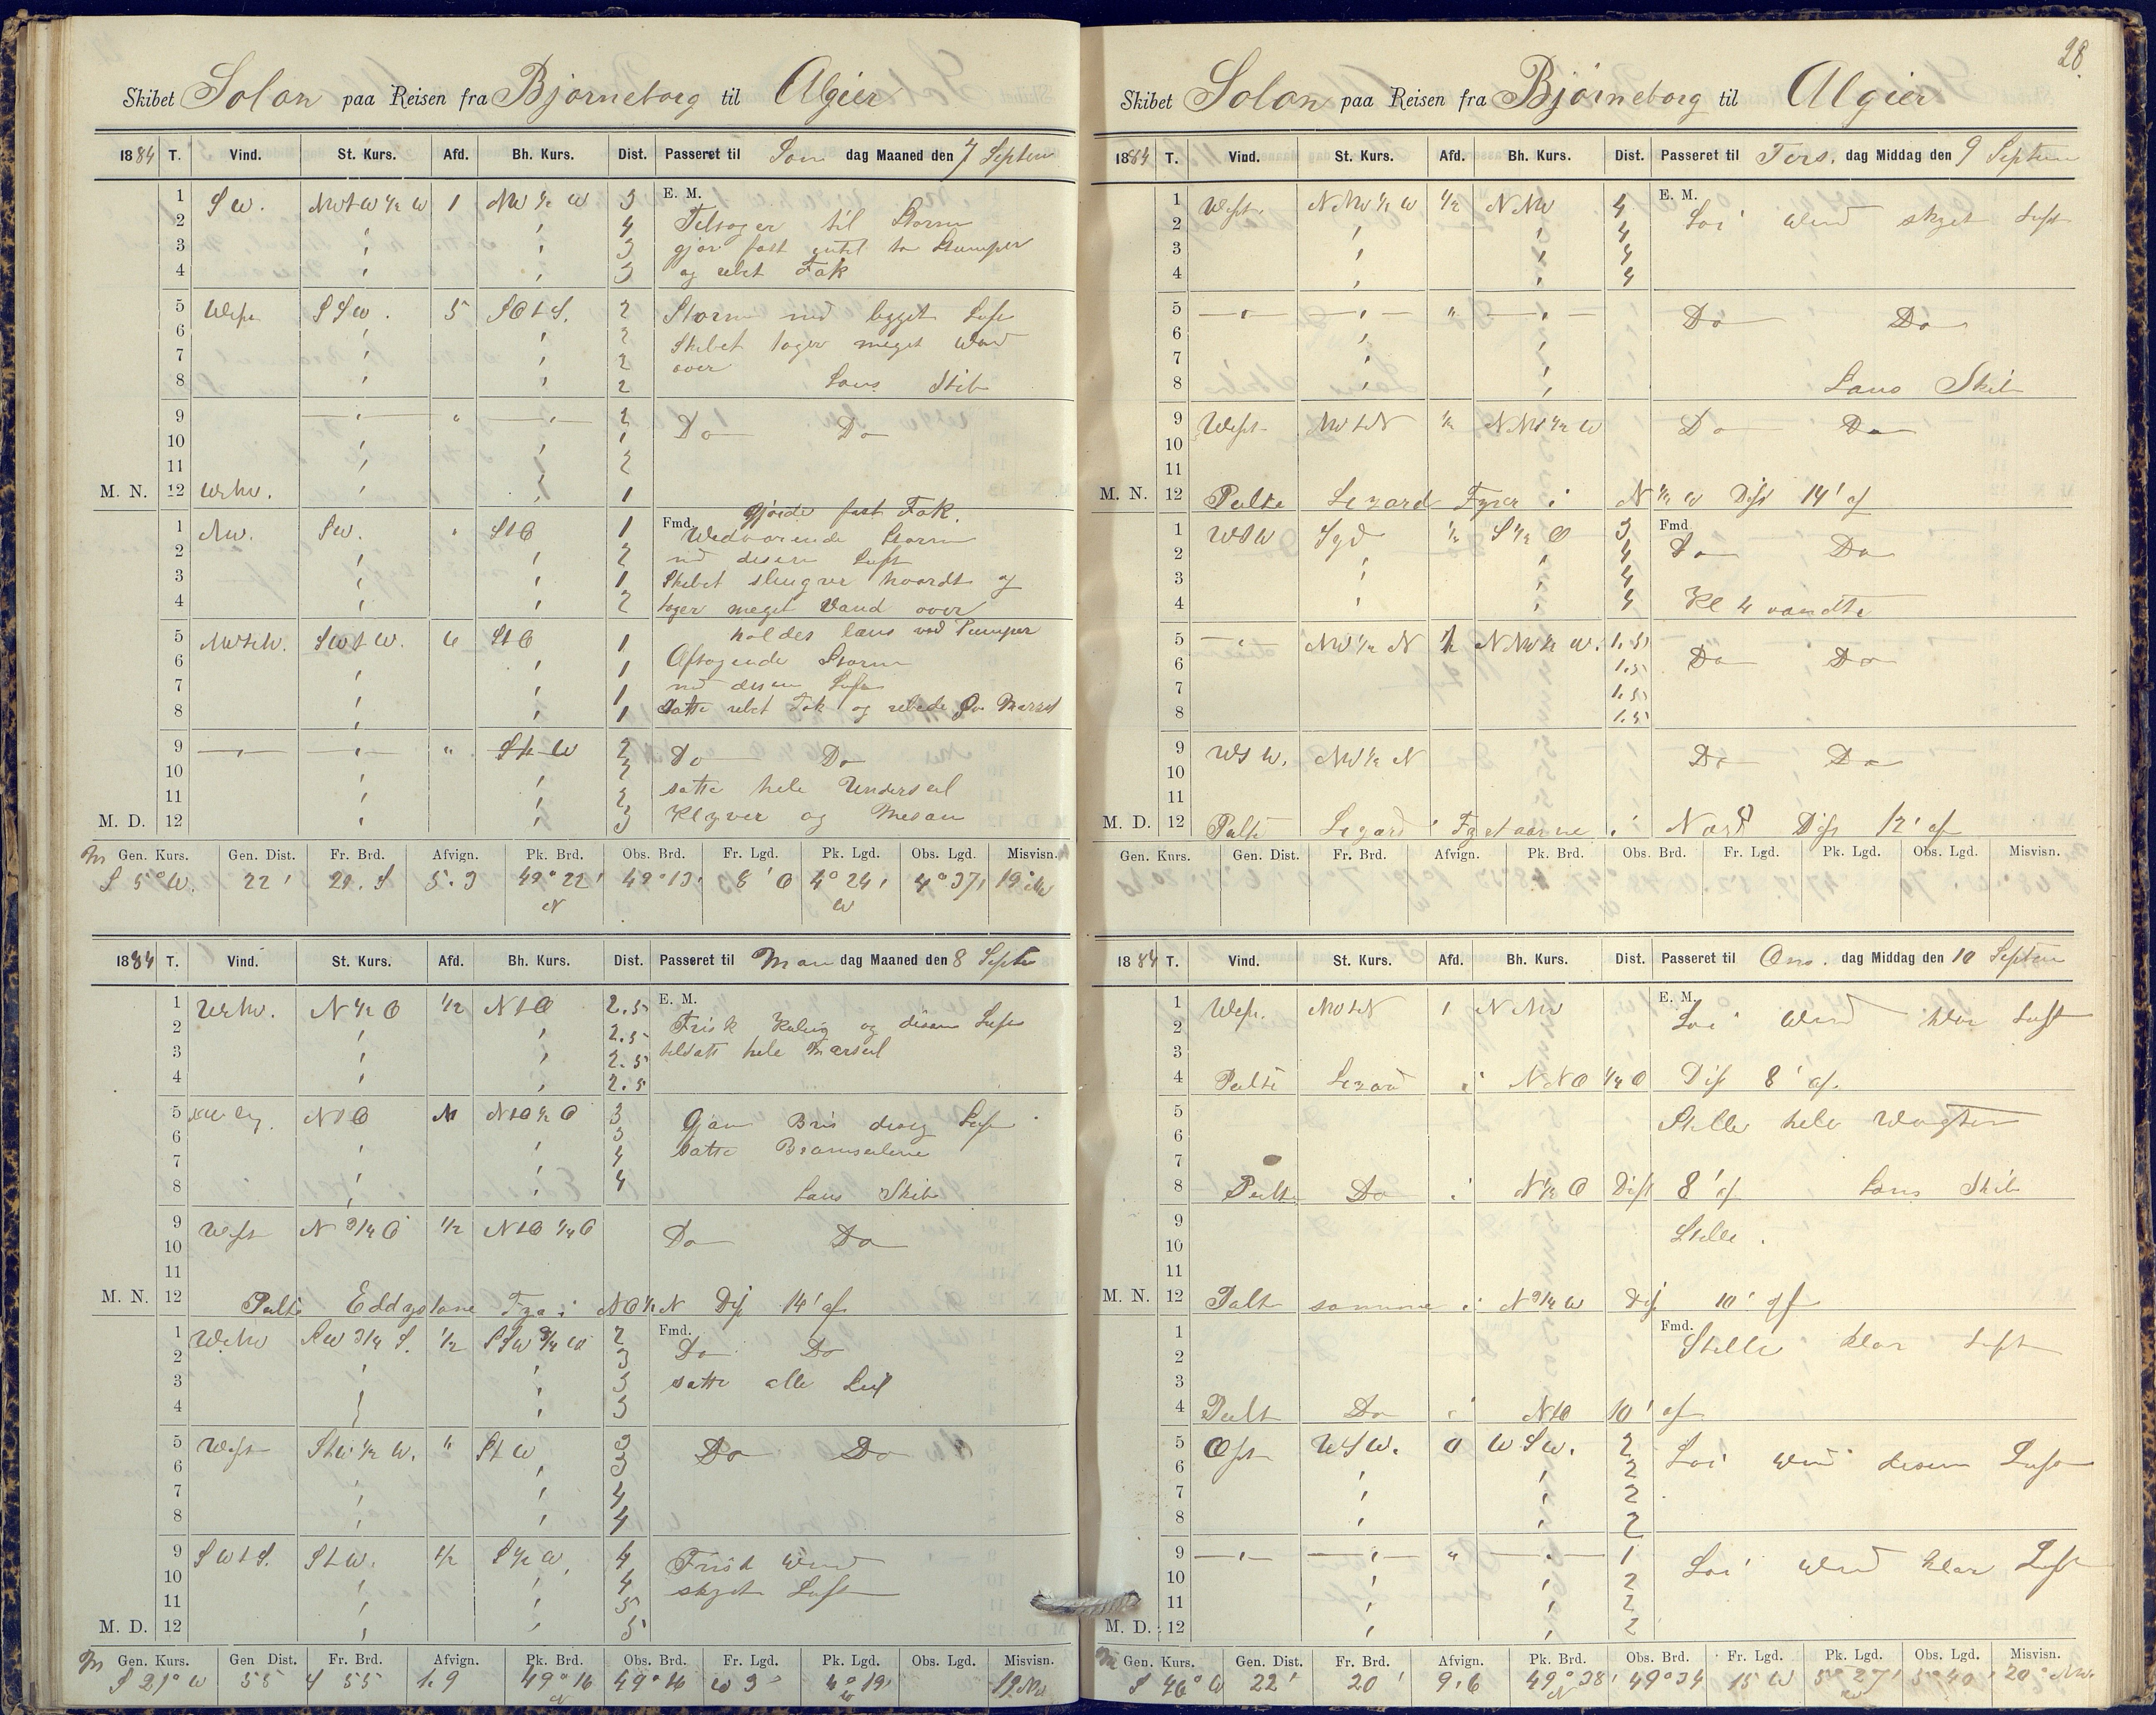 Skibet Solon paa Reisen fra Bjørneborg til Algier
1884 T. Vind. St. Kurs. Afd. Bh. Kurs. Dist. Passeret til Søn dag Maaned den 7 Septem
E. M.
1 SW. NWtW ½ W 1 NW ½ W 3
2 Tiltager til Storm 4
3 gjør fast 3
4 og rebet Fok 3
5 West SSW. 5 SOtS. 2 Storm med bygget Luft
6 Skibet tager meget Vand 2
7 over 2
8 Læns Skib 2
9 2 Do Do
10
11 2
M. N. 12 WNW. 1
gjorde fast Fok.
Fmd.
1 NW. SW. StO 1 Vedvarende Storm
2 med disen Luft 2
3 Skibet slingrer haardt og 1
4 tager meget Vand over 2
5 NWtW. SWtW. 6 StO 1 holdes læns ved Pumper
6 Aftagende Storm 1
7 med disen Luft 1
8 Satte rebet Fok og rebede Mærs 1
9 StW 2 Do Do
10 2
11 satte hele Underseil 2
M. D. 12 Klyver og Mesan 3
Gen. Kurs. Gen. Dist. Fr. Brd. Afvign. Pk. Brd. Obs. Brd. Fr. Lgd. Pk. Lgd. Obs. Lgd. Misvisn.
S 5° W. 22' 22. S 5.3 49° 22' 49° 13' 8' O 4° 24' 4° 37' 19° NW
N W
1884 T. Vind. St. Kurs. Afd. Bh. Kurs. Dist. Passeret til Man dag Maaned den 8 Septem
E. M.
1 WNW. N ½ O ½ NtO 2.5
2 Frisk Kuling og disen Luft 2.5
3 tilsatte hele Mærseil 2.5
4 2.5
5 NtO NtO ½ O 3 Gjæv Bris diseg Luft
6 satte Bramseilene 3
7 4
8 Læns Skib 4
9 West N ¾ O ½ NtO ¼ O Do Do
10
11
M. N. 12 Peilte Eddystone Fyr i NO ½ N Dist 14' af
Fmd.
1 WNW SW ¾ S. ½ SSW ¾ W 2 Do Do
2 3
3 satte alle Seil 3
4 3
5 West StW ½ W. " StW 3 Do Do
6 3
7 4
8 4
9 SWtS. StW. ½ S ½ W. 4 Frisk Wind
10 skyet Luft 4
11 5
M. D. 12 5
Gen. Kurs. Gen Dist. Fr. Brd. Afvign. Pk. Brd. Obs. Brd. Fr. Lgd. Pk. Lgd. Obs. Lgd. Misvisn.
S 21° W 55 S 55 1.9 49° 16 49° 16 W 3' 4° 19' 19 NW
N W
28
Skibet Solon paa Reisen fra Bjørneborg til Algier
1884 T. Vind. St. Kurs. Afd. Bh. Kurs. Dist. Passeret til Tirs. dag Middag den 9 Septem
E. M.
1 West. NNW ½ W ½ NNW 4 Løi Wind skyet Luft
2 4
3 4
4 4
5 " Do Do
6
7
8 Læns Skib
9 West NWtN ½ NNW ½ W Do Do
10
11
M. N. 12 Peilte Lezard Fyrer i N ½ W Dist 14' af
Fmd.
1 WSW Syd ½ S ½ O 3 Do Do
2 4
3 4
4 4 Kl 4 vendte
5 NW ½ N ½ NNW ½ W. 1.5
6 1.5 Do Do
7 1.5
8 1.5
9 WSW. NW ½ N Do Do
10
11
M. D. 12 Peilte Lezard Fyrtaarne i Nord Dist 12' af
Gen. Kurs. Gen. Dist. Fr. Brd. Afvign. Pk. Brd. Obs. Brd. Fr. Lgd. Pk. Lgd. Obs. Lgd. Misvisn.
1884 T. Vind. St. Kurs. Afd. Bh. Kurs. Dist. Passeret til Ons. dag Middag den 10 Septem
E. M.
1 West. NWtN 1 NNW Løi Wind klar Luft
2
3
4 Peilte Lezard i NNO ½ O Dist 8' af.
5 Stille hele Vagten
6
7
8 Peilte Do i N ½ O Dist 8' af Læns Skib
9 Stille.
10
11
M. N. 12 Peilte samme i N ¾ W Dist 10' af
Fmd.
1 Stille klar Luft
2
3
4 Peilt Do i NtO 10' af
5 Ost WSW. 0 WSW. 2 Løi Wind disen Luft
6 2
7 2
8 2
9 " 1 Løi Wind klar Luft
10 2
11 2
M. D. 12 2
Gen. Kurs. Gen. Dist. Fr. Brd. Afvign. Pk. Brd. Obs. Brd. Fr. Lgd. Pk. Lgd. Obs. Lgd. Misvisn.
S 46° W 22' 20' 9.6 49° 38' 49° 34 15 W 5° 27' 5° 40' 20° NW.
N W